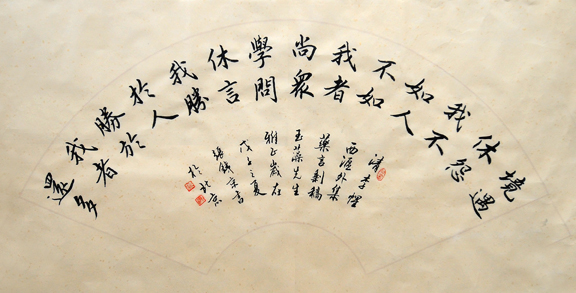 境遇
休怨
我不
如人
不如
我者
尚眾
學問
休言
我勝
於人
勝於
我者
還多
清李惺
西漚外集
藥言剩稿
玉藻先生
雅正歲在
戊子之夏
張京書
於北京